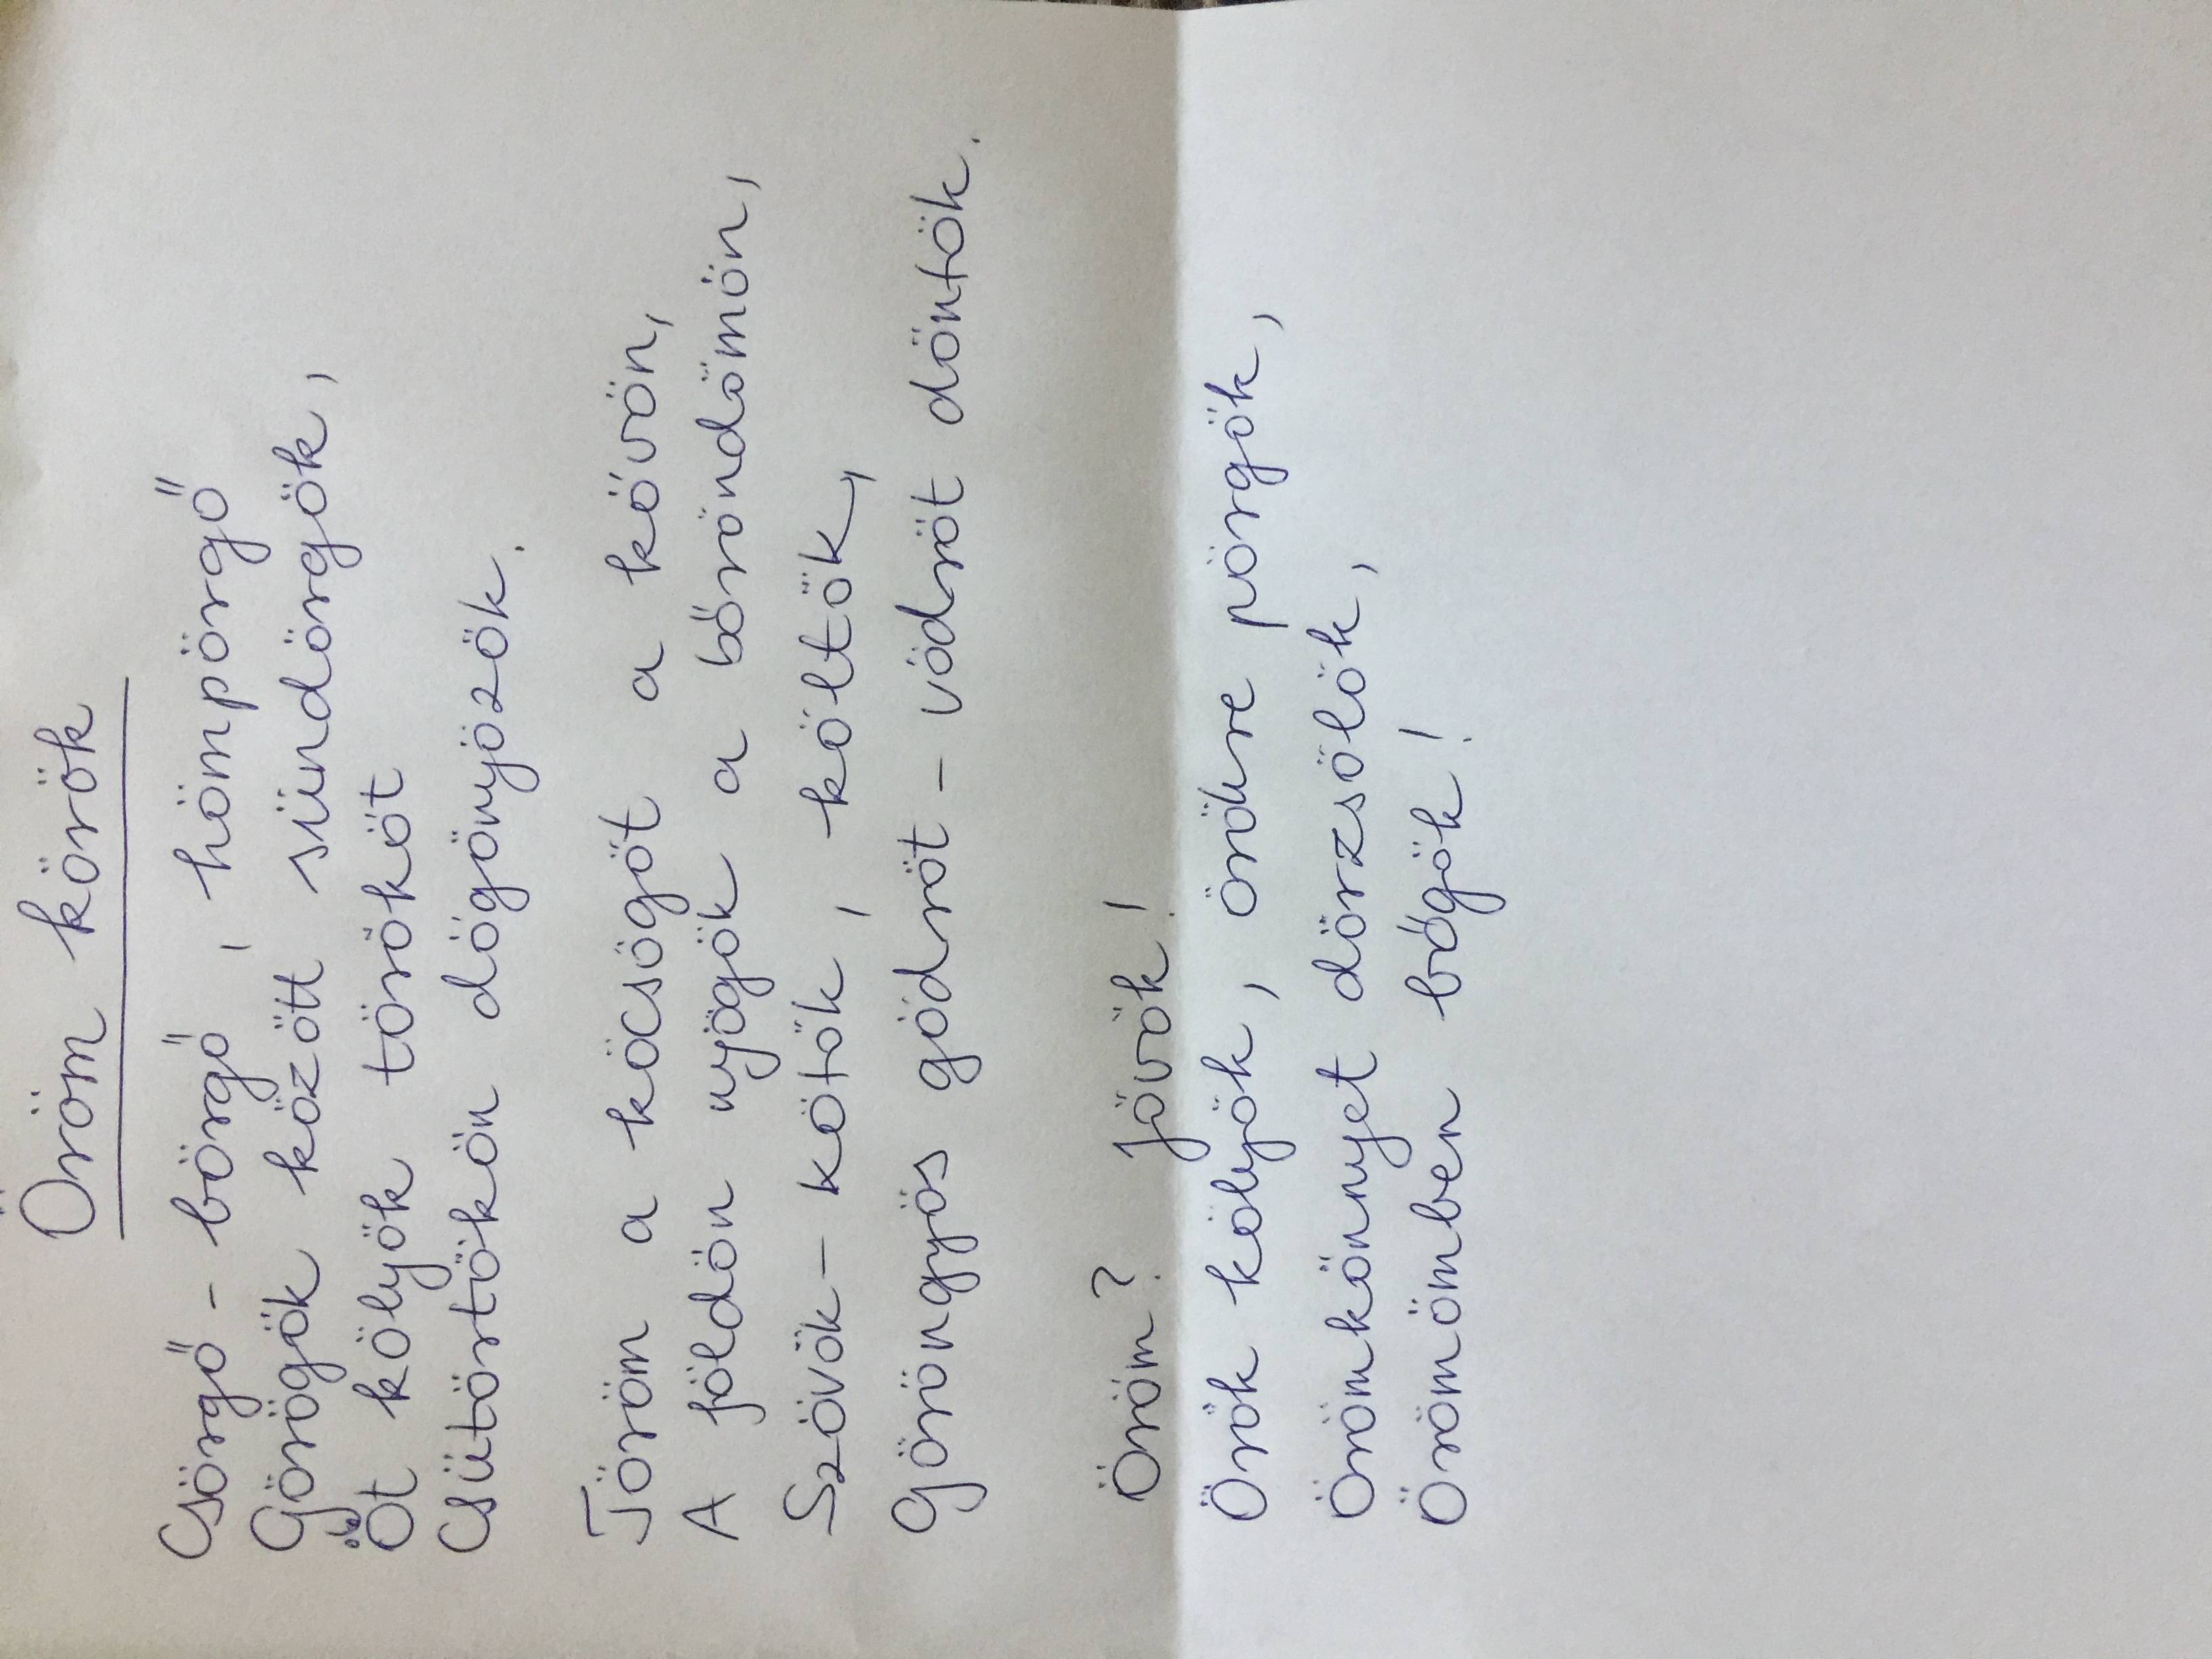 Öröm körök
Csörgő-börgő, hömpörgő
Görögök között sündörgök,
Öt kölyök törököt
Csütörtökön dögönyözök.
Töröm a köcsögöt a kövön,
A földön nyögök a bőröndömön,
Szövök-kötök, költök,
Göröngyös gödröt-vödröt döntök.
Öröm? Jövök!
Örök kölyök, örökre pörgök,
Örömkönnyet dörzsölök,
Örömömben bőgök!